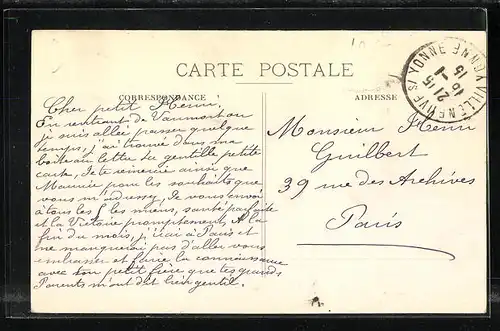 CARTE POSTALE
CORRESPONDANCE
ADRESSE
Cher petit Henri.
En rentrant de Vaumort ou
je suis allée passer quelque
temps, j'ai trouvé dans ma
boite au lettre ta gentille petite
carte, Je te remercie ainsi que
Maurice pour les souhaits que
vous m'adresser, Je vous envoi
à tous les miens, santé parfaite
et la Victoire promptement, A la
fin du mois, j'irai à Paris et
ne manquerai pas d'aller vous
embrasser et faire la connaissance
avec ton petit frère que tes grands
Parents m'ont dit bien gentil.
Monsieur Henri
Guilbert
39 rue des Archives
Paris
VILLENEUVE S/ YONNE YONNE
21 15
16 -1
15